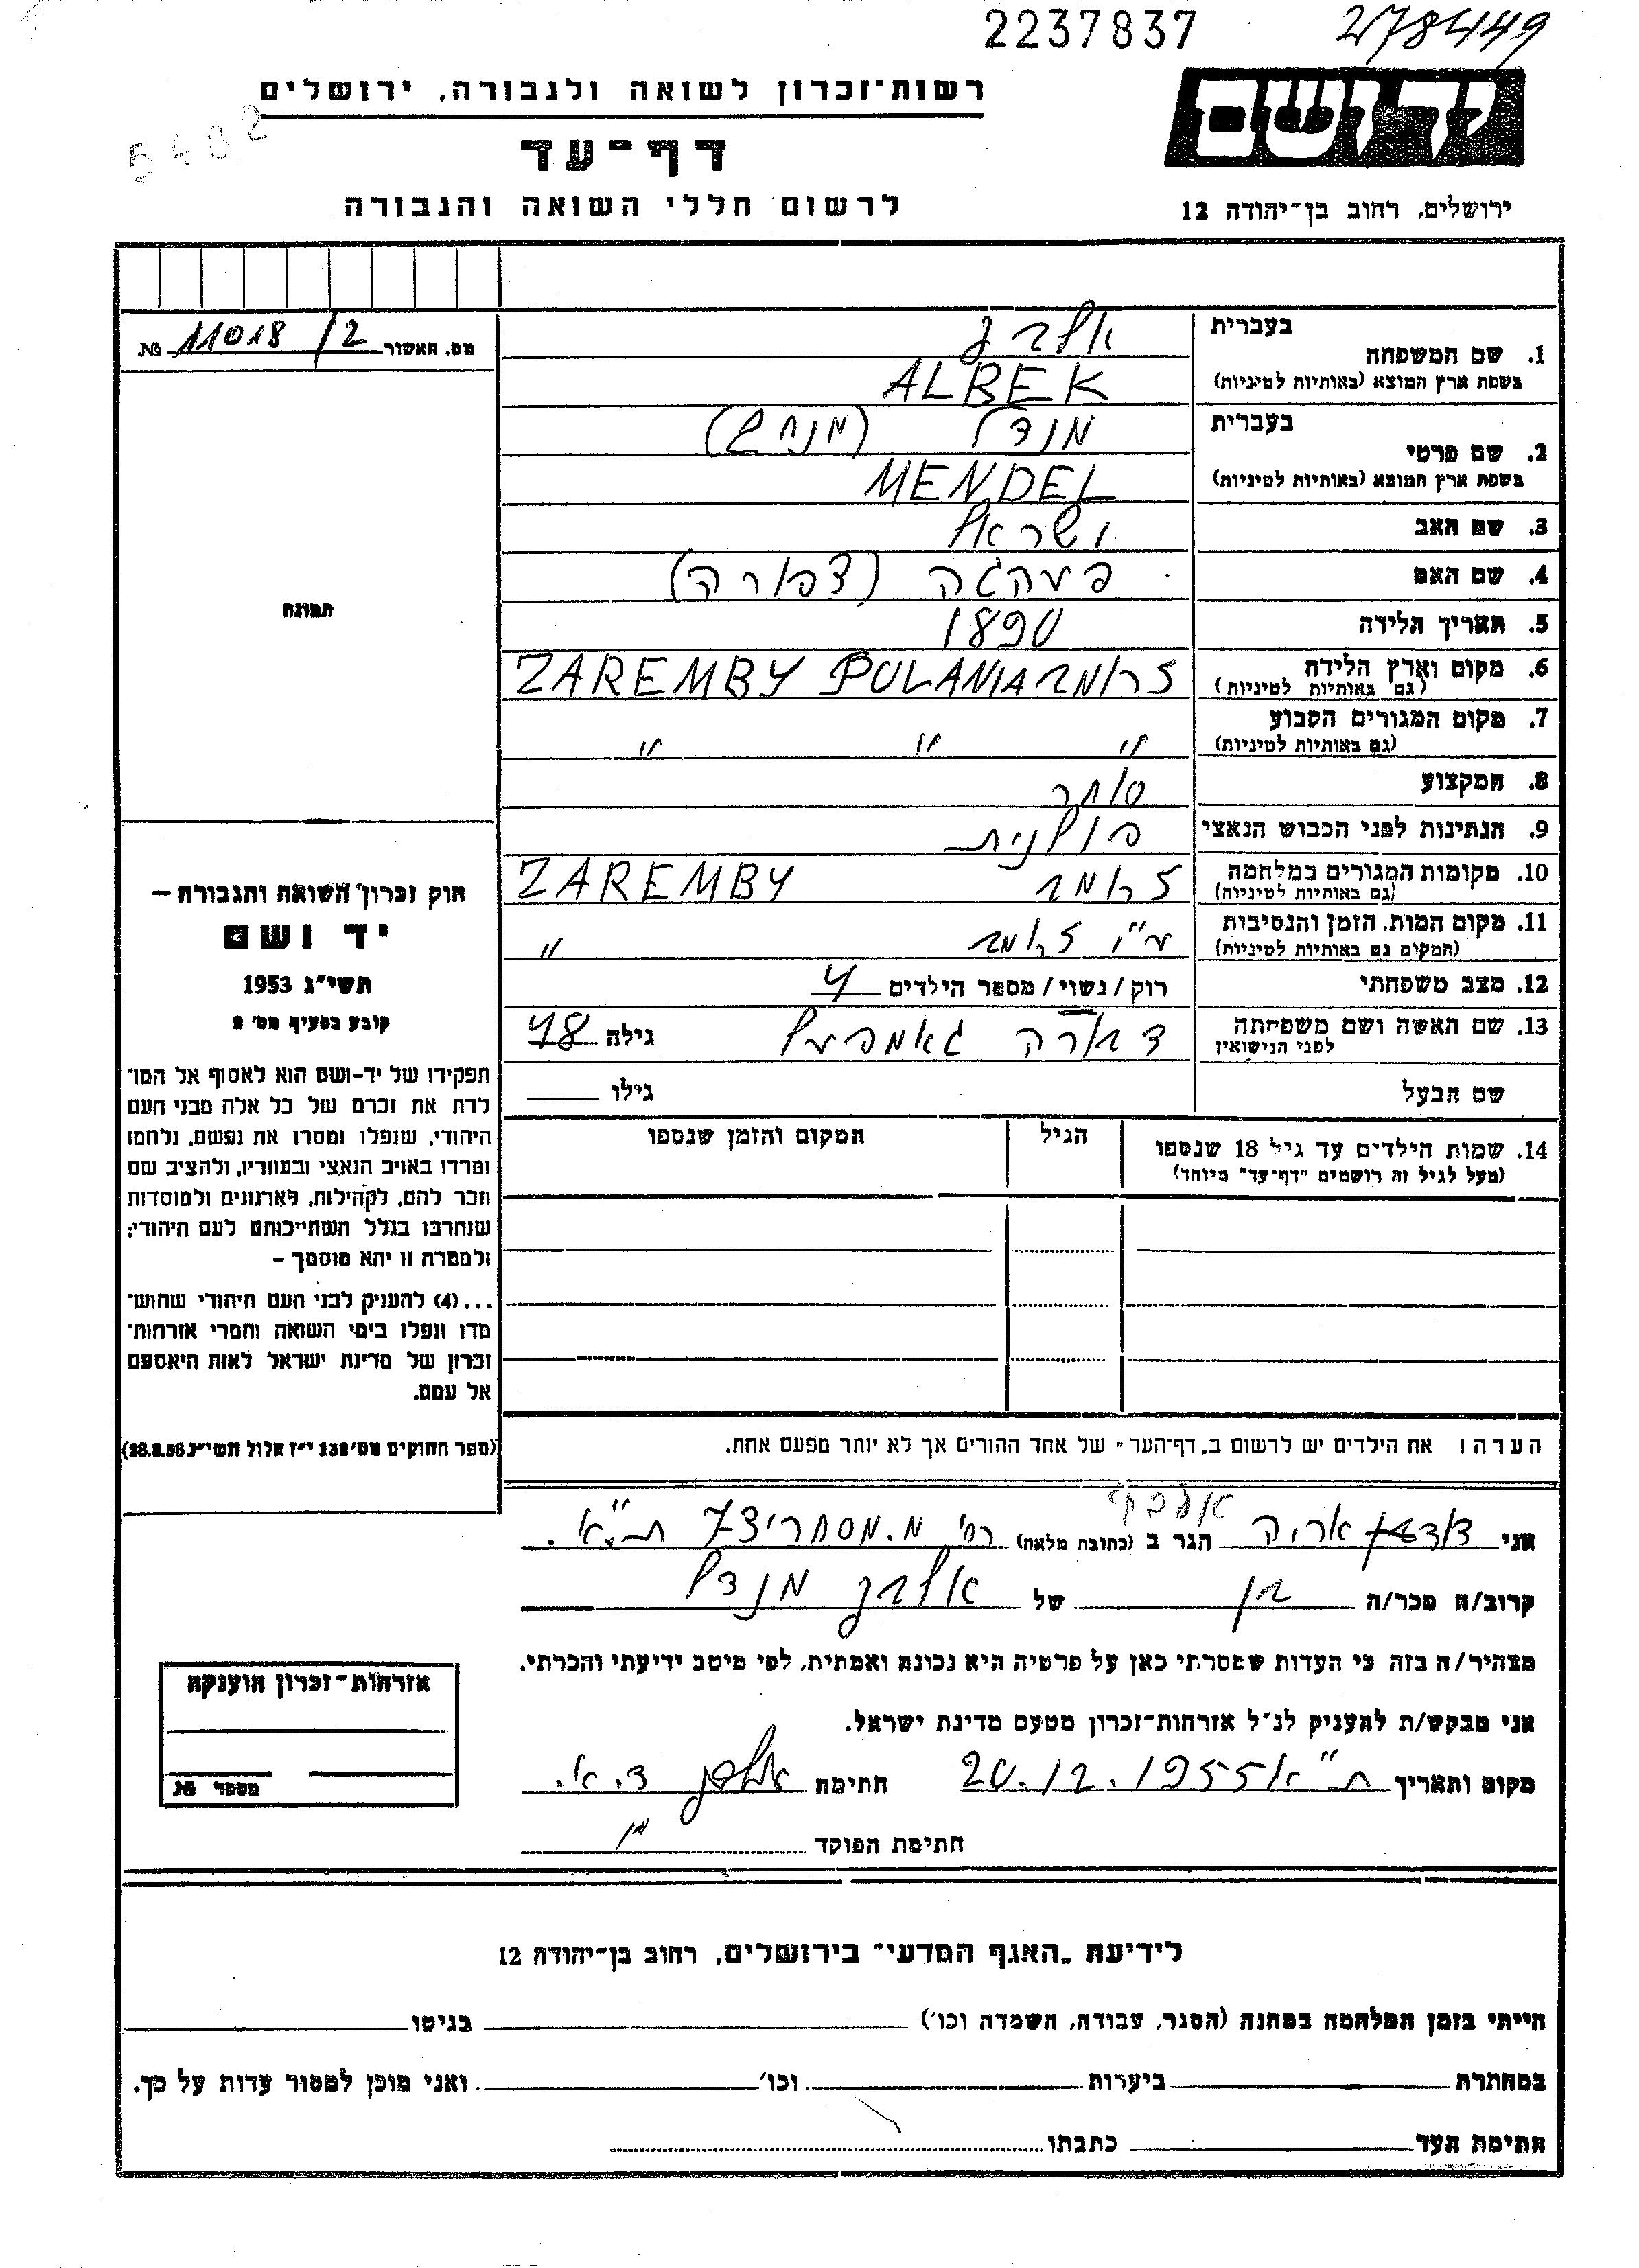 2237837
278449
5482
יד ושם
רשות־זכרון לשואה ולגבורה, ירושלים
דף־עד
לרשום חללי השואה והגבורה
ירושלים, רחוב בן־יהודה 12
מס. האשור 11018/2 №
תמונה
חוק זכרון השואה והגבורה –
יד ושם
תשי"ג 1953
קובע בסעיף מס' 2
תפקידו של יד-ושם הוא לאסוף אל המו־
לדת את זכרם של כל אלה מבני העם
היהודי, שנפלו ומסרו את נפשם, נלחמו
ומרדו באויב הנאצי ובעוזריו, ולהציב שם
וזכר להם, לקהילות, לארגונים ולמוסדות
שנחרבו בגלל השתייכותם לעם היהודי;
ולמטרה זו יהא מוסמך –
...(4) להעניק לבני העם היהודי שהוש־
מדו ונפלו בימי השואה והמרי אזרחות־
זכרון של מדינת ישראל לאות היאספם
אל עמם.
(ספר החוקים מס' 132 י"ז אלול תשי"ג 28.8.53)
1. שם המשפחה בעברית אלבק
בשפת ארץ המוצא (באותיות לטיניות) ALBEK
2. שם פרטי בעברית מנדל (מנחם)
בשפת ארץ המוצא (באותיות לטיניות) MENDEL
3. שם האב ישראל
4. שם האם (צפורה)
5. תאריך הלידה 1890
6. מקום וארץ הלידה ZAREMBY POLANIA
(גם באותיות לטיניות)
7. מקום המגורים הקבוע " " "
(גם באותיות לטיניות)
8. המקצוע סוחר
9. הנתינות לפני הכבוש הנאצי פולנית
10. מקומות המגורים במלחמה ZAREMBY
(גם באותיות לטיניות)
11. מקום המות, הזמן והנסיבות "
(המקום גם באותיות לטיניות)
12. מצב משפחתי רוק/נשוי/מספר הילדים 4
13. שם האשה ושם משפחתה לפני הנישואין דבורה גילה 48
שם הבעל גילו
14. שמות הילדים עד גיל 18 שנספו הגיל המקום והזמן שנספו
(מעל לגיל זה רושמים "דף־עד" מיוחד)
הערה: את הילדים יש לרשום ב"דף־העד" של אחד ההורים אך לא יותר מפעם אחת.
אלבק
אני אריה הגר ב (כתובת מלאה) רח' ת"א.
קרוב/ה מכר/ה בן של אלבק מנדל
מצהיר/ה בזה כי העדות שמסרתי כאן על פרטיה היא נכונה ואמתית, לפי מיטב ידיעתי והכרתי.
אני מבקש/ת להעניק לנ"ל אזרחות־זכרון מטעם מדינת ישראל.
מקום ותאריך ת"א 20.12.1955 חתימת
חתימת הפוקד
אזרחות־זכרון הוענקה
מספר №
לידיעת "האגף המדעי" בירושלים, רחוב בן־יהודה 12
הייתי בזמן המלחמה במחנה (הסגר, עבודה, השמדה וכו') בגיטו
במחתרת ביערות וכו' ואני מוכן למסור עדות על כך.
חתימת העד כתבתו